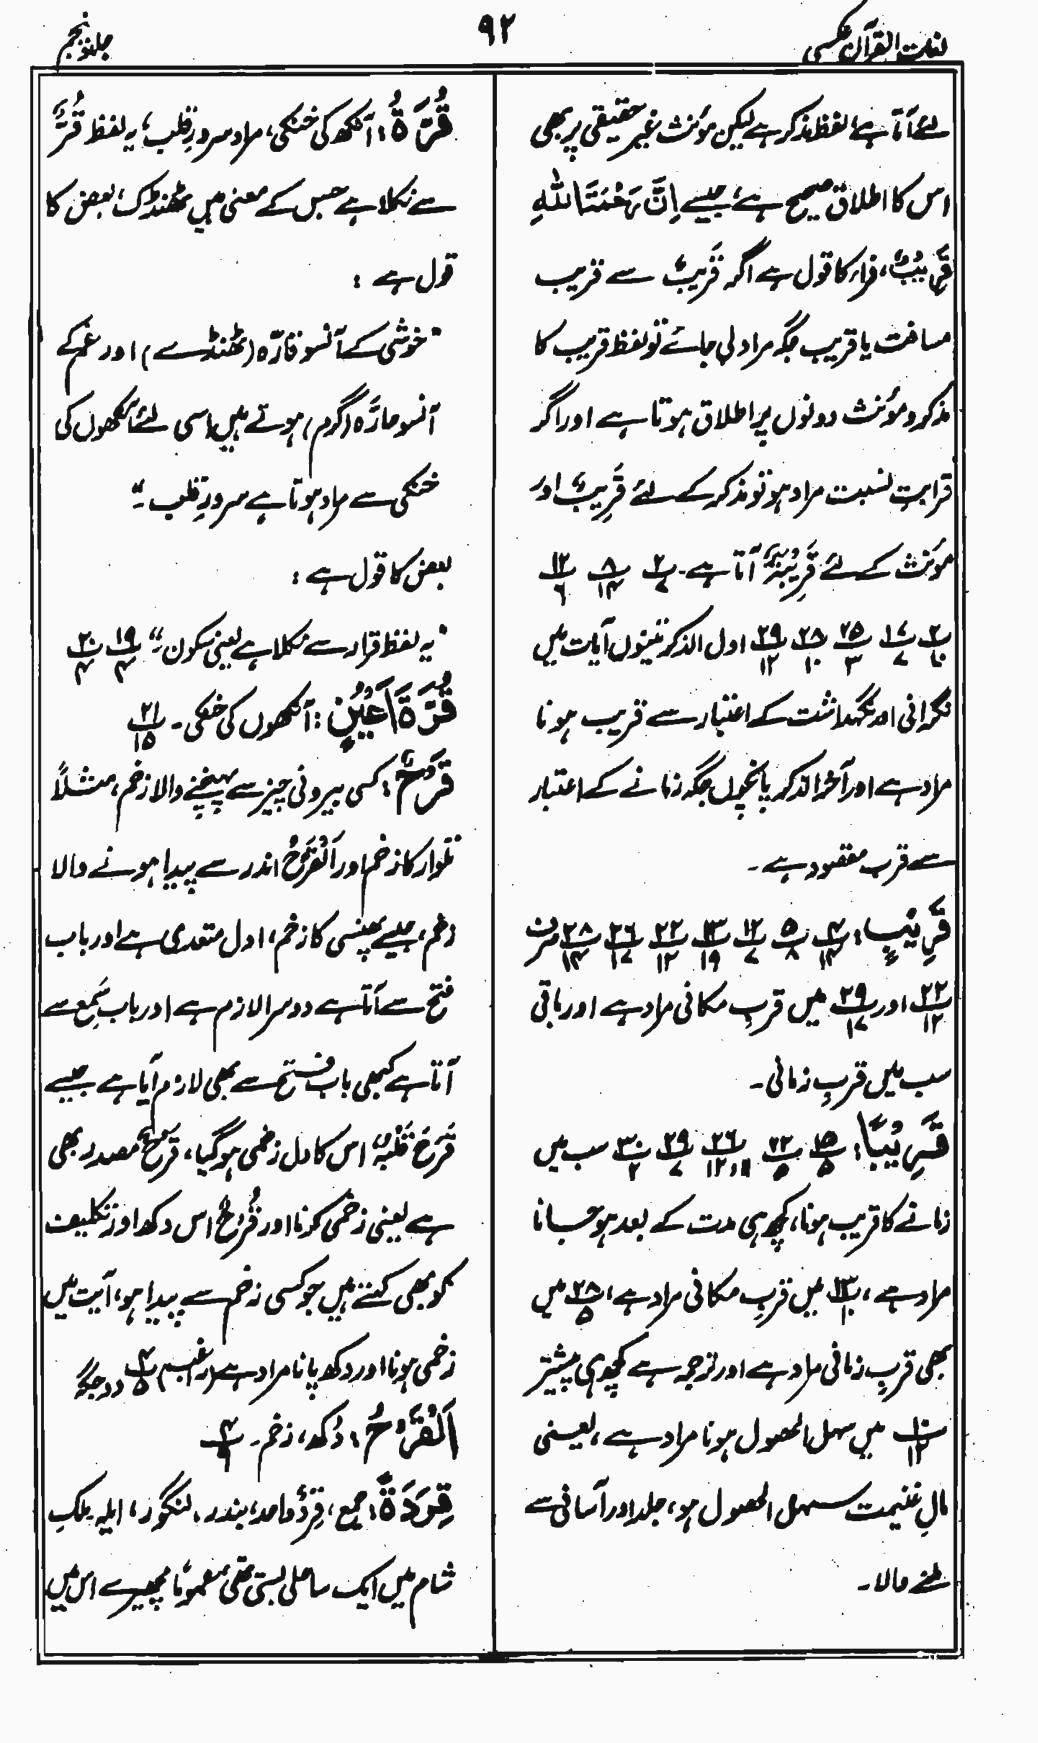 لغات القرآن عکسی
۹۲
جلد پنجم
لئے آتا ہے، لفظ مذکر ہے لیکن مؤنث غیر حقیقی پر بھی
اس کا اطلاق صحیح ہے، جیسے اِنَّ رَحْمَتَ اللّٰهِ
قَرِيْبٌ، فراء کا قول ہے اگر قَرِيْبٌ سے قریب
مسافت یا قریب جگہ مراد لی جائے تو لفظ قریب کا
مذکر و مؤنث دونوں پر اطلاق ہوتا ہے اور اگر
قرابت نسبت مراد ہو تو مذکر کے لئے قَرِيْبٌ اور
مؤنث کے لئے قَرِيْبَةٌ آتا ہے۔ ۲/۷ ۸/۱۴ ۱۲/۶
۲/۱۰ ۱۷/۷ ۲۵/۳ ۲۸/۱۰ ۲۹/۱۲ اول الذکر تینوں آیات میں
نگرانی اور نگہداشت کے اعتبار سے قریب ہونا
مراد ہے اور آخر الذکر پانچوں جگہ زمانے کے اعتبار
سے قرب مقصود ہے۔
قَرِيْبٍ: ۴/۱۴ ۵/۸ ۱۲/۷ ۱۳/۱۹ ۲۲/۱۲ ۲۶/۱۷ ۲۸/۱۴ صرف
۲۲/۱۲ اور ۲۹/۱۷ میں قربِ مکانی مراد ہے اور باقی
سب میں قربِ زمانی۔
قَرِيْبًا: ۱۵/۵ ۲۲/۵ ۲۶/۱۱،۱۲ ۲۹/۷ ۳۰/۲ سب میں
زمانے کا قریب ہونا، کچھ ہی مدت کے بعد ہو جانا
مراد ہے، ۱۳/۱۰ میں قربِ مکانی مراد ہے، ۲۸/۵ میں
بھی قربِ زمانی مراد ہے اور ترجمہ ہے کچھ ہی پیشتر
۱۰/۱۲ میں سہل الحصول ہونا مراد ہے، یعنی
مالِ غنیمت سہل الحصول ہو، جلد اور آسانی سے
ملنے والا۔
قُرَّةُ: آنکھ کی خنکی، مراد سرورِ قلب، یہ لفظ قُرٌّ
سے نکلا ہے جس کے معنی ہیں ٹھنڈک، بعض کا
قول ہے:
"خوشی کے آنسو قارّہ (ٹھنڈے) اور غم کے
آنسو حارّہ (گرم) ہوتے ہیں اسی لئے آنکھوں کی
خنکی سے مراد ہوتا ہے سرورِ قلب۔"
بعض کا قول ہے:
"یہ لفظ قرار سے نکلا ہے یعنی سکون۔" ۱۹/۴ ۲۰/۴
قُرَّةِ اَعْيُنٍ: آنکھوں کی خنکی۔ ۲۱/۱۵
قَرْحٌ: کسی بیرونی چیز سے پہنچنے والا زخم، مثلاً
تلوار کا زخم اور اَلْقَرْحُ اندر سے پیدا ہونے والا
زخم، جیسے پھنسی کا زخم، اول متعدی ہے اور باب
فتح سے آتا ہے دوسرا لازم ہے اور باب سَمِعَ سے
آتا ہے کبھی باب فتح سے بھی لازم آیا ہے جیسے
قَرَحَ قَلْبُهٗ اس کا دل زخمی ہو گیا، قَرْحٌ مصدر بھی
ہے یعنی زخمی کرنا اور قُرْحٌ اس دکھ اور تکلیف
کو بھی کہتے ہیں جو کسی زخم سے پیدا ہو، آیت میں
زخمی ہونا اور دکھ پانا مراد ہے (راغب) ۴/۵ دو جگہ
اَلْقَرْحُ: دُکھ، زخم۔ ۴/۹
قِرَدَةً: جمع، قِرْدٌ واحد، بندر، لنگور، ایلہ ملکِ
شام میں ایک ساحلی بستی تھی عموماً مچھیرے اس میں